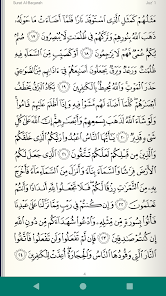 Surat Al Baqarah Juz' 1
مَثَلُهُمْ كَمَثَلِ ٱلَّذِى ٱسْتَوْقَدَ نَارًا فَلَمَّآ أَضَآءَتْ مَا حَوْلَهُۥ
ذَهَبَ ٱللَّهُ بِنُورِهِمْ وَتَرَكَهُمْ فِى ظُلُمَٰتٍ لَّا يُبْصِرُونَ ١٧ صُمٌّۢ
بُكْمٌ عُمْىٌ فَهُمْ لَا يَرْجِعُونَ ١٨ أَوْ كَصَيِّبٍ مِّنَ ٱلسَّمَآءِ فِيهِ
ظُلُمَٰتٌ وَرَعْدٌ وَبَرْقٌ يَجْعَلُونَ أَصَٰبِعَهُمْ فِىٓ ءَاذَانِهِم مِّنَ ٱلصَّوَٰعِقِ
حَذَرَ ٱلْمَوْتِ وَٱللَّهُ مُحِيطٌۢ بِٱلْكَٰفِرِينَ ١٩ يَكَادُ ٱلْبَرْقُ يَخْطَفُ
أَبْصَٰرَهُمْ كُلَّمَآ أَضَآءَ لَهُم مَّشَوْا۟ فِيهِ وَإِذَآ أَظْلَمَ عَلَيْهِمْ قَامُوا۟
وَلَوْ شَآءَ ٱللَّهُ لَذَهَبَ بِسَمْعِهِمْ وَأَبْصَٰرِهِمْ إِنَّ ٱللَّهَ عَلَىٰ كُلِّ
شَىْءٍ قَدِيرٌ ٢٠ يَٰٓأَيُّهَا ٱلنَّاسُ ٱعْبُدُوا۟ رَبَّكُمُ ٱلَّذِى خَلَقَكُمْ
وَٱلَّذِينَ مِن قَبْلِكُمْ لَعَلَّكُمْ تَتَّقُونَ ٢١ ٱلَّذِى جَعَلَ لَكُمُ
ٱلْأَرْضَ فِرَٰشًا وَٱلسَّمَآءَ بِنَآءً وَأَنزَلَ مِنَ ٱلسَّمَآءِ مَآءً فَأَخْرَجَ
بِهِۦ مِنَ ٱلثَّمَرَٰتِ رِزْقًا لَّكُمْ فَلَا تَجْعَلُوا۟ لِلَّهِ أَندَادًا وَأَنتُمْ
تَعْلَمُونَ ٢٢ وَإِن كُنتُمْ فِى رَيْبٍ مِّمَّا نَزَّلْنَا عَلَىٰ عَبْدِنَا
فَأْتُوا۟ بِسُورَةٍ مِّن مِّثْلِهِۦ وَٱدْعُوا۟ شُهَدَآءَكُم مِّن دُونِ ٱللَّهِ
إِن كُنتُمْ صَٰدِقِينَ ٢٣ فَإِن لَّمْ تَفْعَلُوا۟ وَلَن تَفْعَلُوا۟ فَٱتَّقُوا۟
ٱلنَّارَ ٱلَّتِى وَقُودُهَا ٱلنَّاسُ وَٱلْحِجَارَةُ أُعِدَّتْ لِلْكَٰفِرِينَ ٢٤